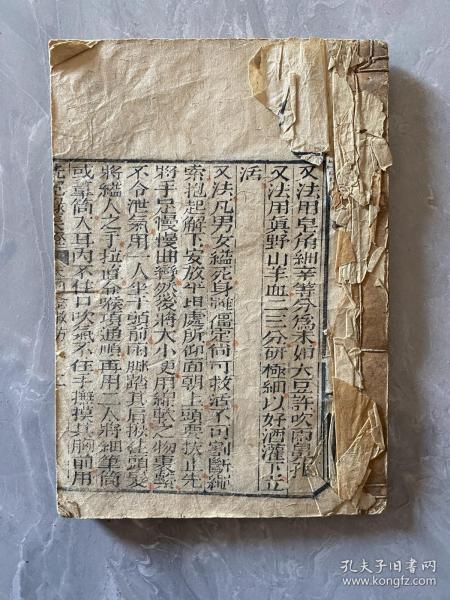 又法用皂角細辛等分為末如大豆許吹兩鼻孔
又法用真野山羊血二三分研極細以好酒灌下立
活
又法凡男女縊死身雖僵定尚可救活不可割斷繩
索抱起解下安放平坦處所仰面朝上頭要扶正先
將手足慢慢曲彎然後將大小更用綿軟之物裹緊
不令泄氣用一人坐于頭前兩腳踏其肩扳住頭髮
將縊人之手拉直令喉項通順再用二人將細筆筒
或葦筒入耳內不住口吹氣不住手撫摸其胸前用
孔夫子旧书网
www.kongfz.com